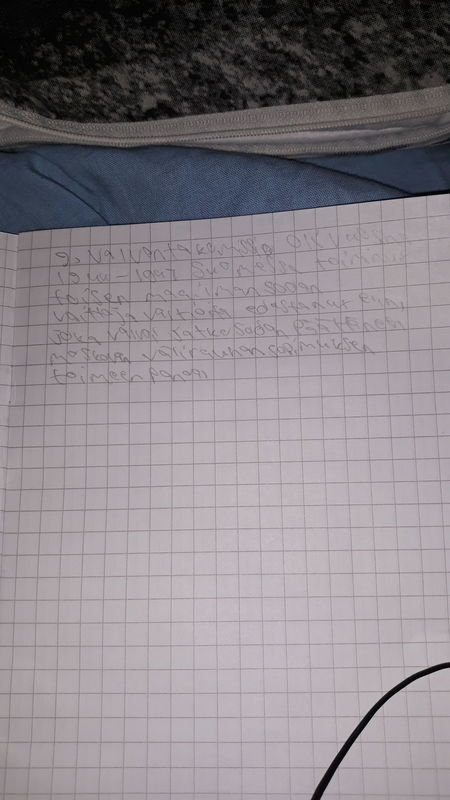 9. Valvontakomissio oli vuosina
1944-1947 Suomessa toiminut
toisen maailman sodan
voittaja valtioita edustanut elin,
joka valvoi jatkosodan päätteneen
moskovan välirauhansopimuksen
toimeenpanoa